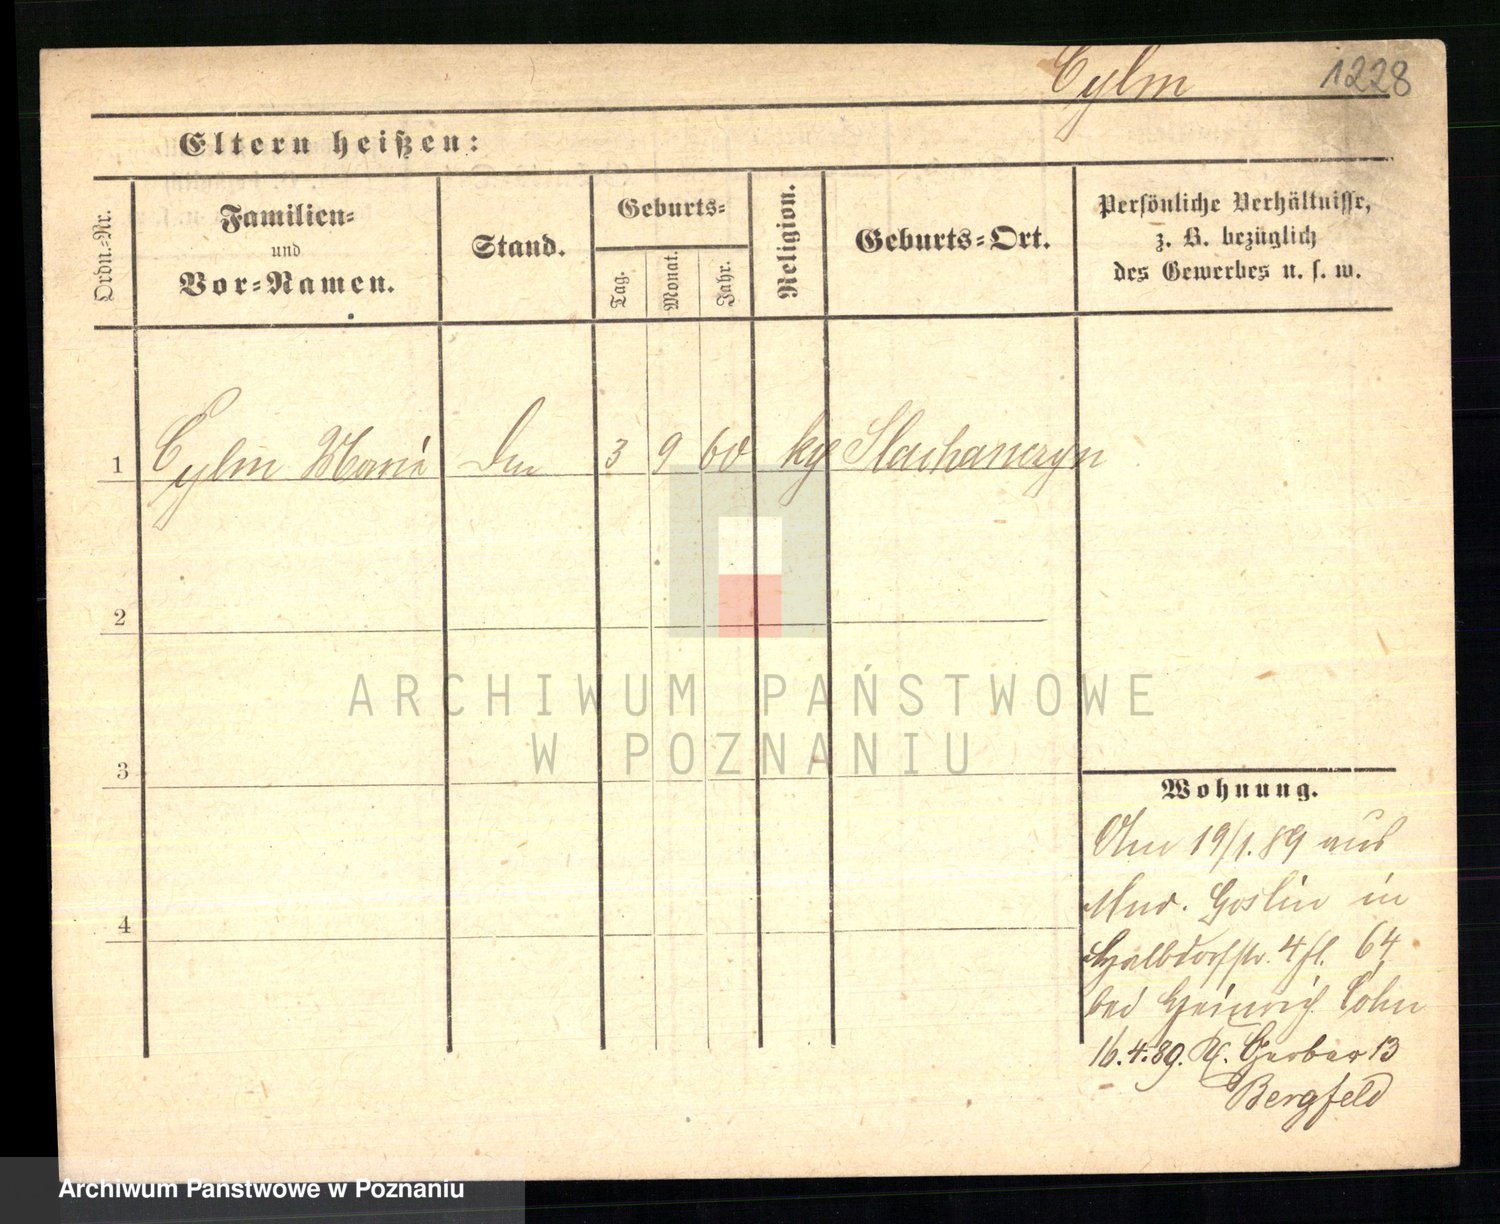 Cylm 1228
Eltern heißen:
Ordn.=Nr.
Familien=
und
Vor=Namen.
Stand.
Geburts=
Tag.
Monat.
Jahr.
Religion.
Geburts=Ort.
Persönliche Verhältnisse,
z. B. bezüglich
des Gewerbes u. s. w.
1 Cylm Marie 3 9 60
2
3
4
ARCHIWUM PAŃSTWOWE
W POZNANIU
Wohnung.
Am 19/1.89 aus
Goslin in
Halbdorfstr. 4 64
bei Heinrich Cohn
16.4.89. Gerber 13
Bergfeld
Archiwum Państwowe w Poznaniu